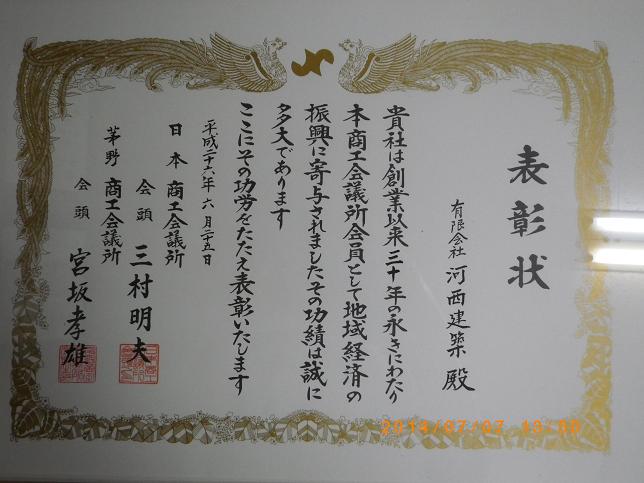 表彰状
有限会社 河西建築 殿
貴社は創業以来三十年の永きにわたり
本商工会議所会員として地域経済の
振興に寄与されましたその功績は誠に
多大であります
ここにその功労をたたえ表彰いたします
平成二十六年六月二十五日
日本商工会議所
会頭 三村明夫
茅野商工会議所
会頭 宮坂孝雄
2014/07/07